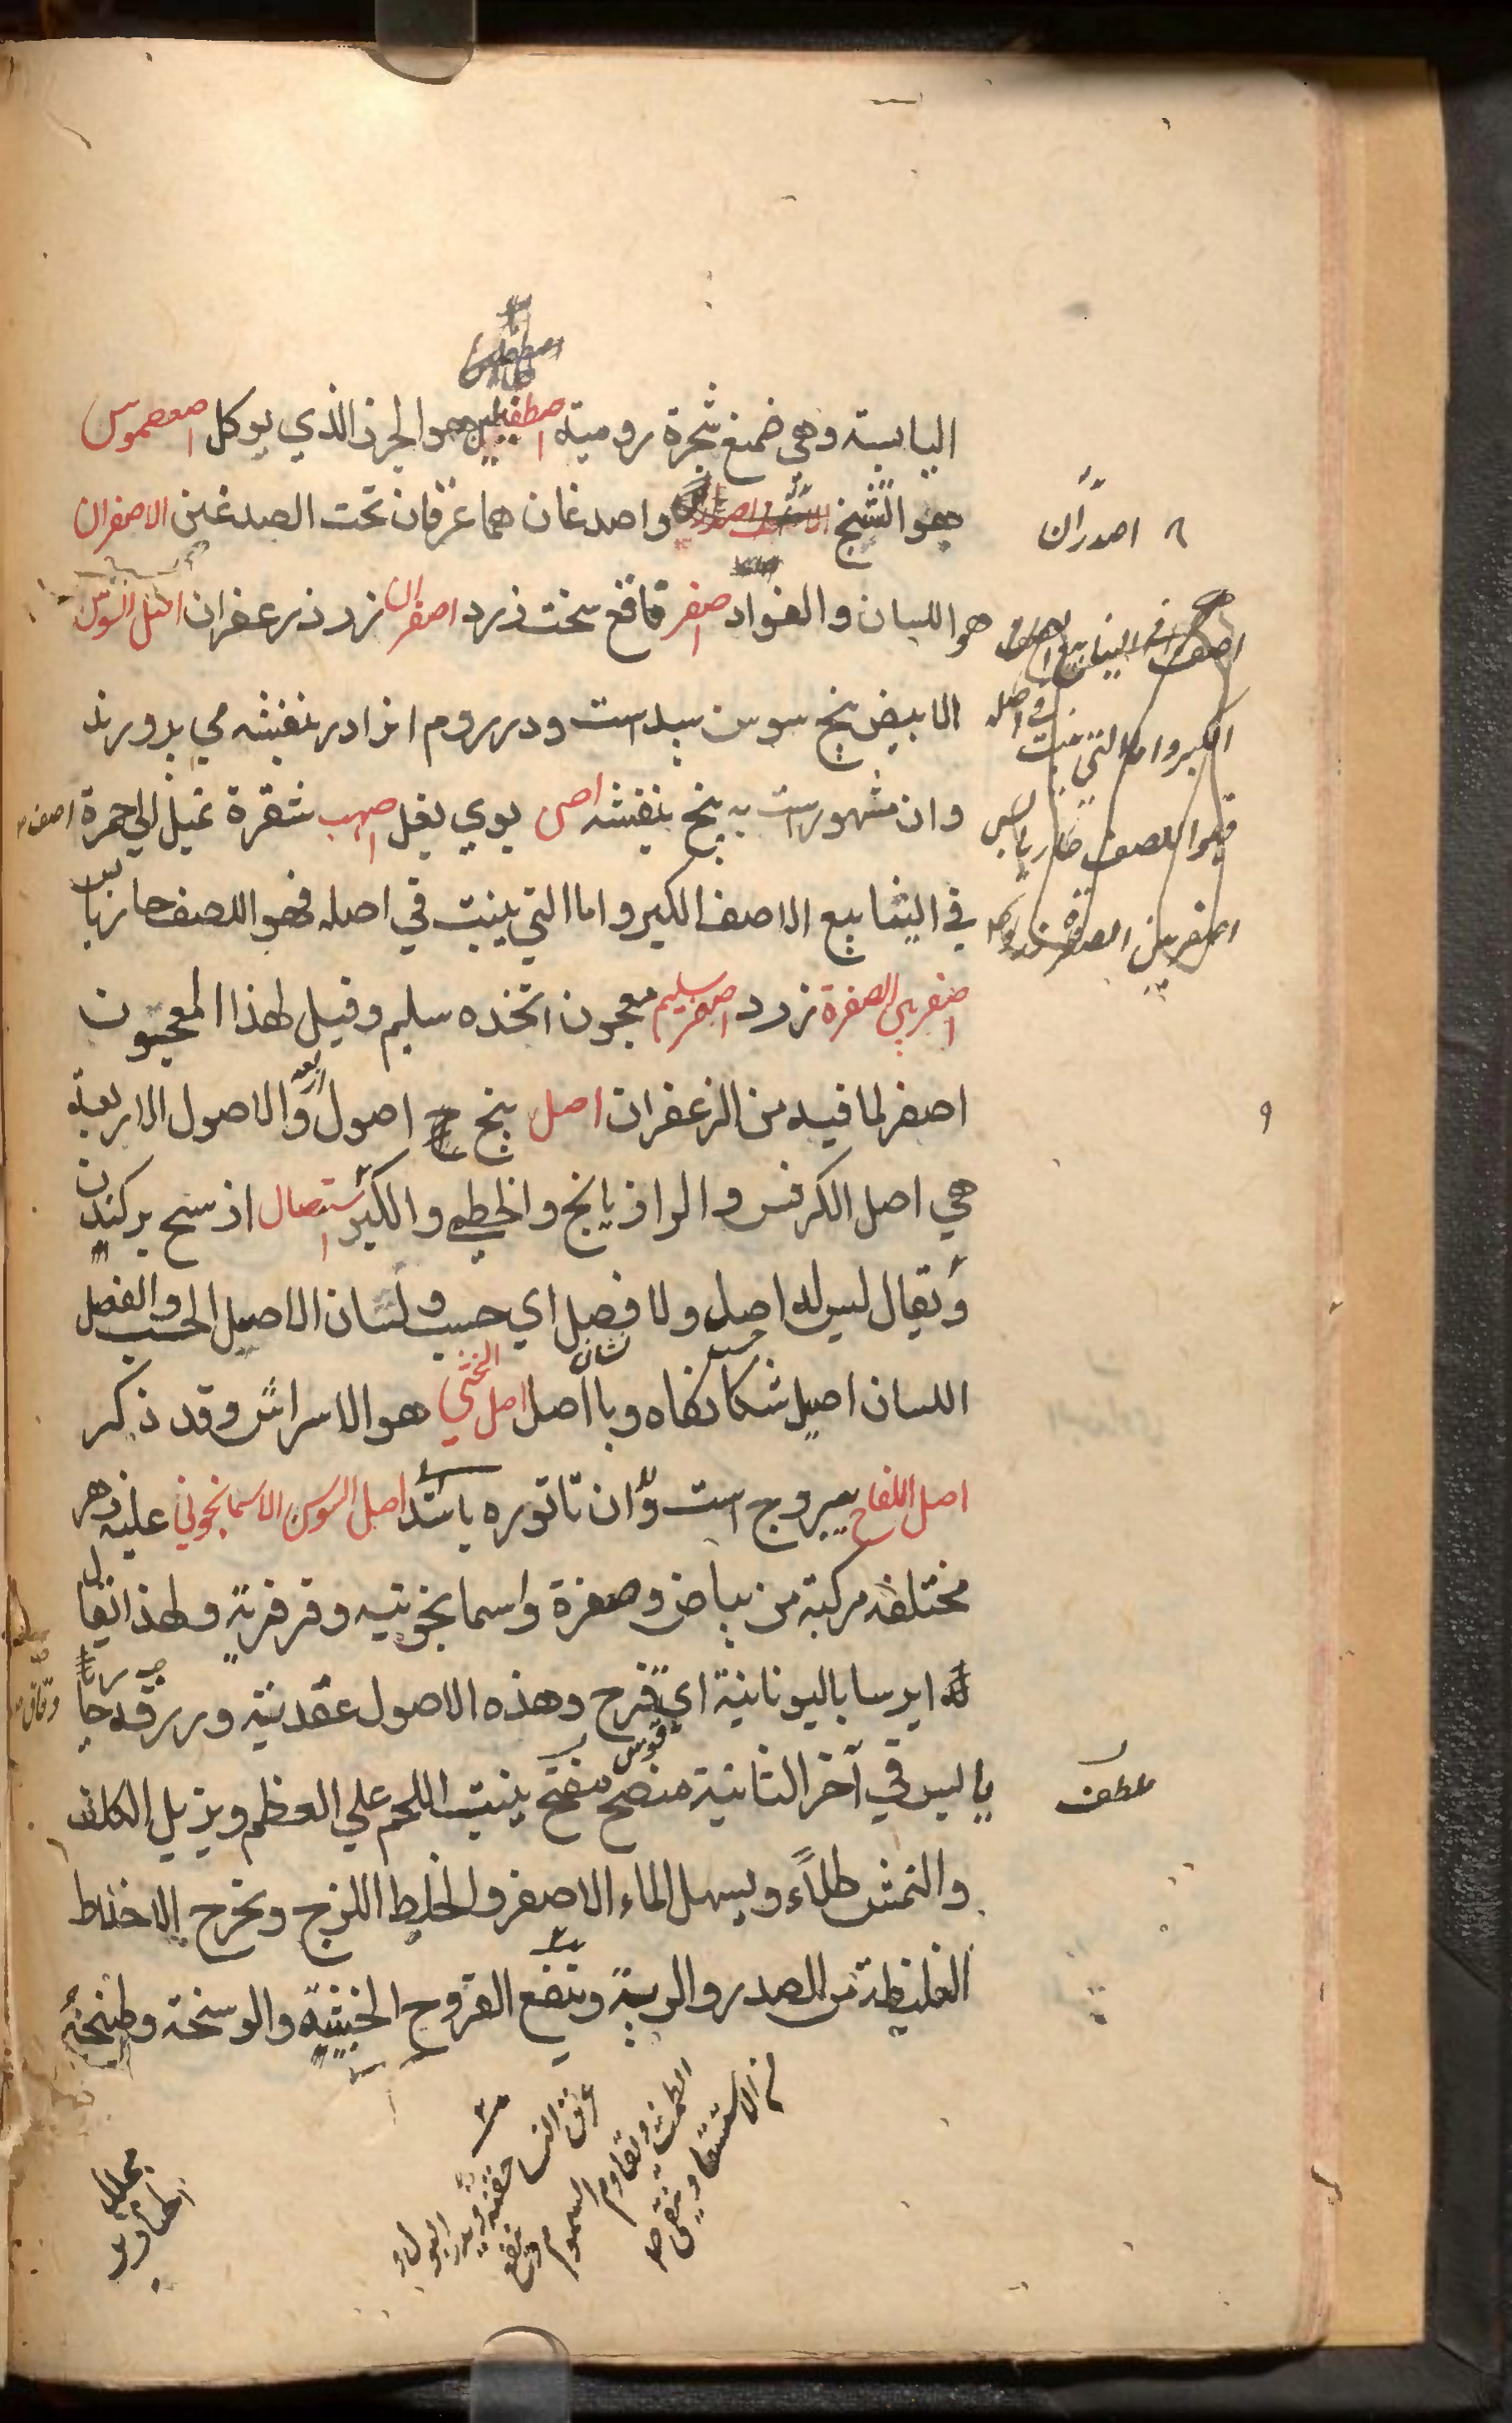 اليابسة وهي ضمغ شجرة رومية اصطفيلين هو الجزر الذي يوكل اصعصموس
هو الشيخ واصدغان هما عرقان تحت الصدغين الاصفران
هو اللسان والفواد اصفر فاقع سخت زرد اصفران زر و زعفران اصل السوسن
الابيض بيخ سوسن سپيد است ودر روم انرا در بنفشه مي پرورند
وان مشهور است به بيخ بنفشه اصى بوي بغل اصهب شقرة تميل الي حمرة اصف
في الينابيع الاصف الكبر واما التي ينبت في اصله فهو اللصف حار يابس
اصفر بين الصفرة زرد اصفر سليم معجون اتخذه سليم وقيل لهذا المعجون
اصفر لما فيه من الزعفران اصل بيخ ج اصول والاصول الاربعة
هي اصل الكرفس والرازيانج والخطمي والكبر استصال از سح بركندن
ويقال ليس له اصل ولا فصل اي حسب ولسان الاصل الحسب والفصل
اللسان اصيل شكانكاه وبا اصل اصل الخنثي هو الاسراش وقد ذكر
اصل اللفاح يبروج است وان تاتوره باشد اصل السوسن الاسمانجوني عليه زهر
مختلفة مركبة من بياض وصفرة واسمانجونيه وفرفرية ولهذا يقال
له ايرسا باليونانية اي قزح وهذه الاصول عقدية وررقه حار
يابس في آخر الثانية منضج مفتح ينبت اللحم علي العظم ويزيل الكلف
والنمش طلاءً ويسهل الماء الاصفر والخليط اللزج ويخرج الاخلاط
الغليظة من الصدر والرية وينفع القروح الخبيثة والوسخة وطبيخه
اصدران
اصف في الينابيع الاصف
الكبر واما التي ينبت في اصله
فهو اللصف حار يابس
اصفر بين الصفرة زرد
ملطف
قوس
عرق النسا حقنة ويدر البول و
الطمث ويقاوم السموم وينفع
من الاستسقا وينقي